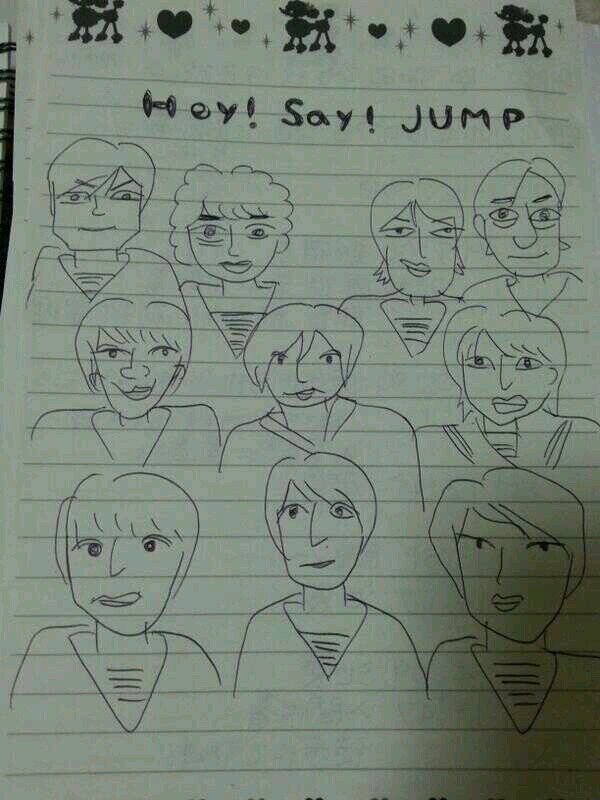 Hey! Say! JUMP